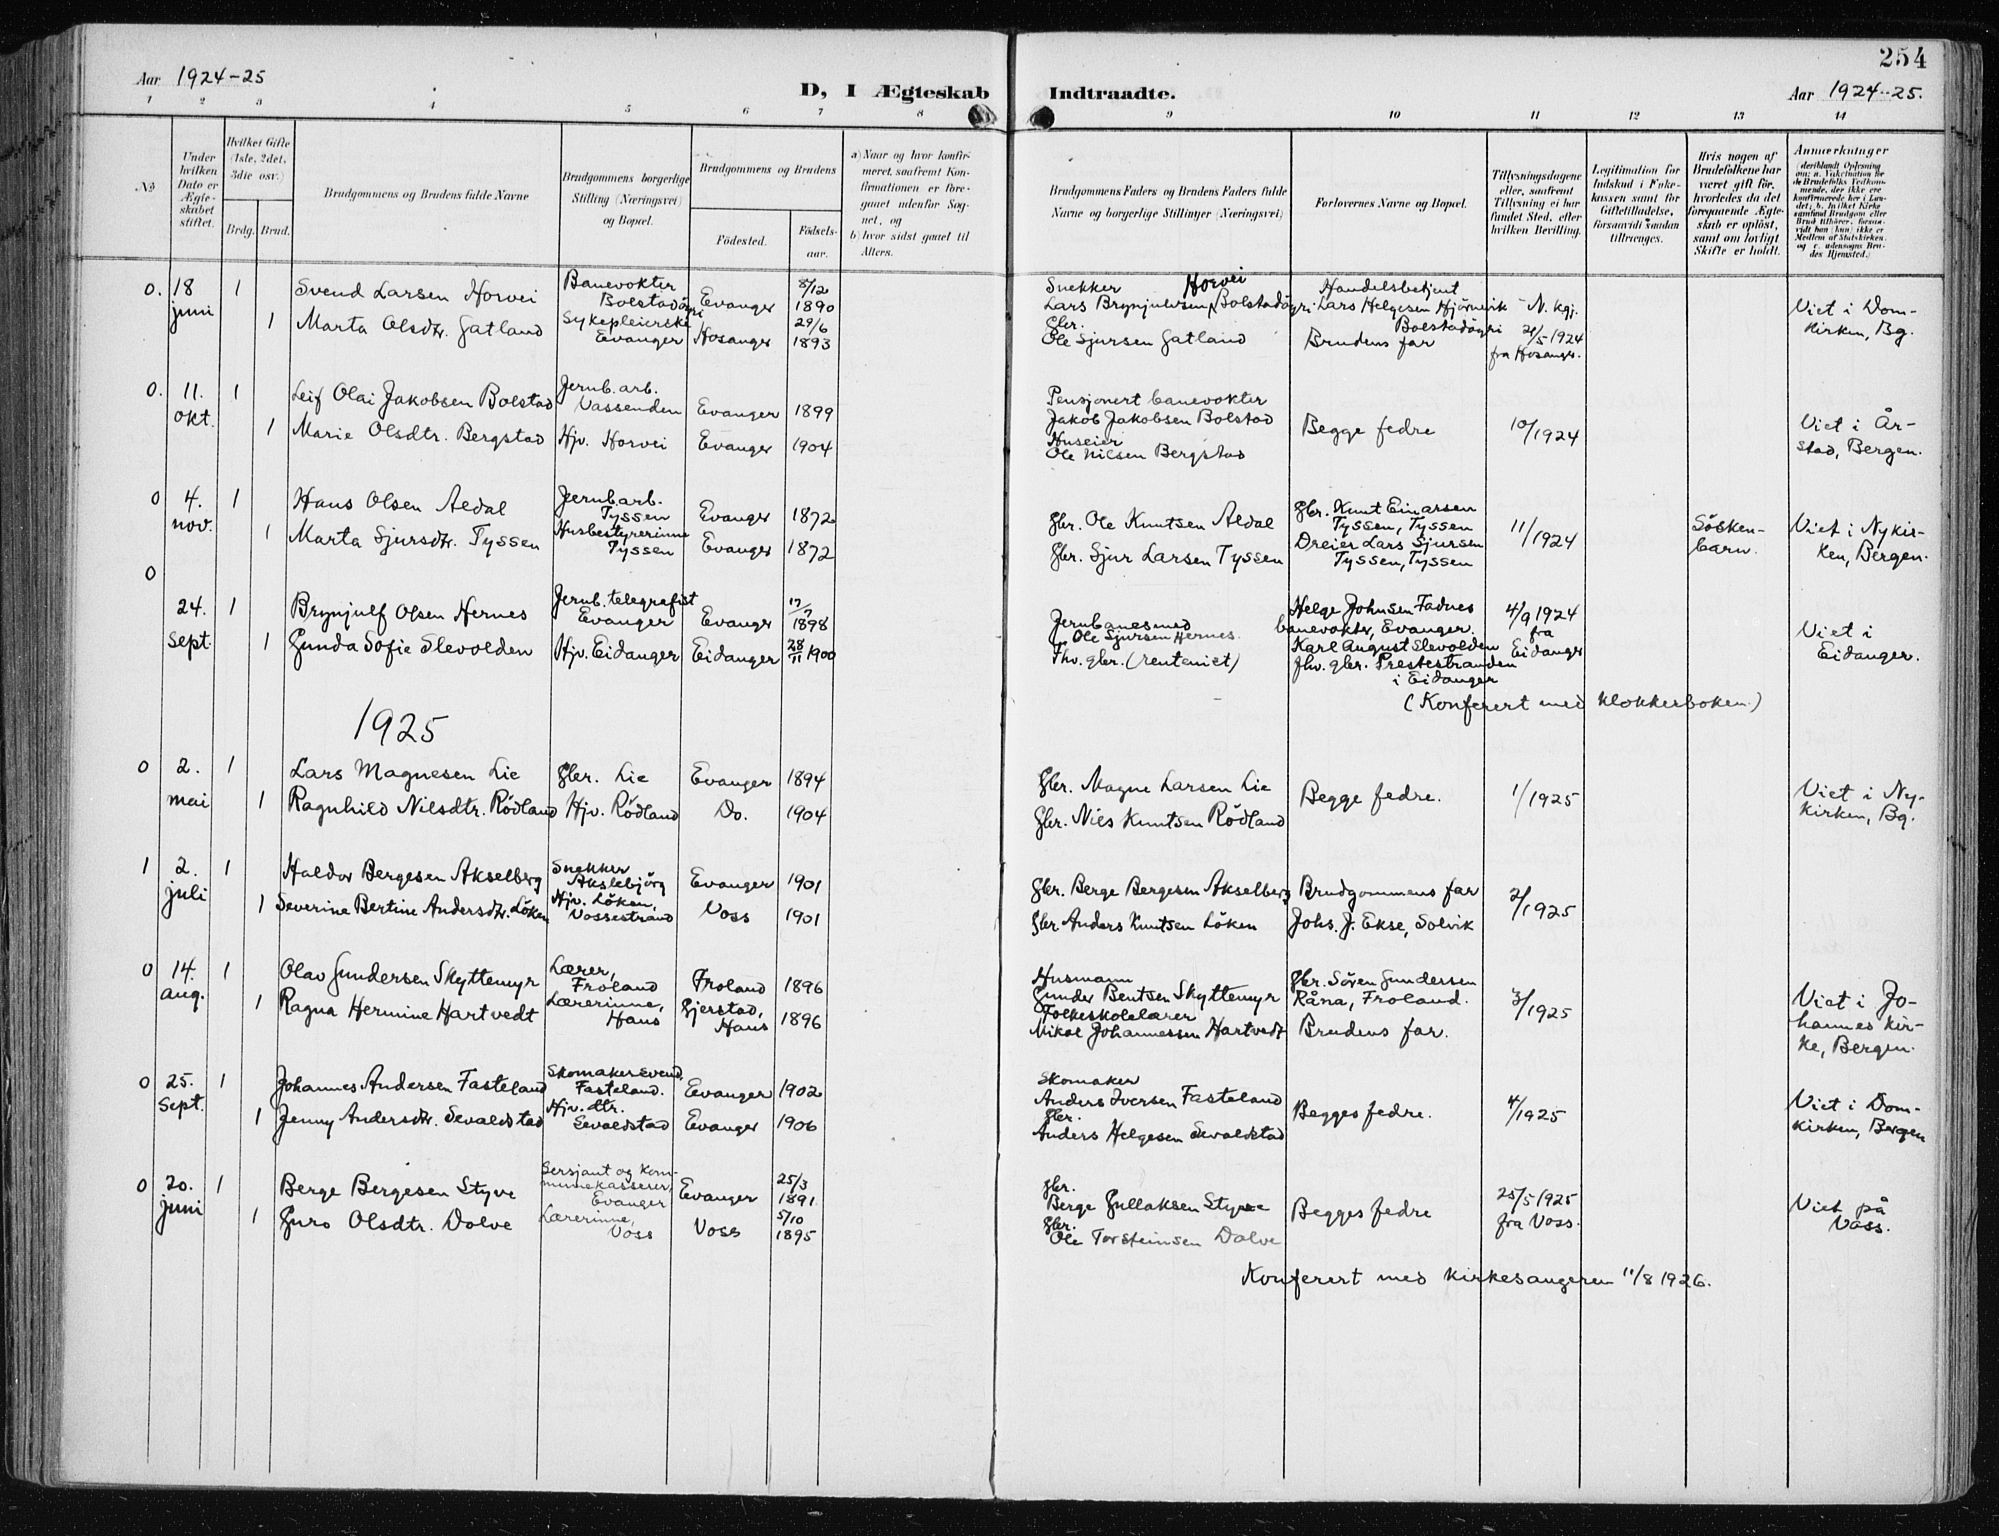 254
Aar 1924-25
D, I Ægteskab Indtraadte.
Aar 1924-25.
1 2 3 4 5 6 7 8 9 10 11 12 13 14
No
Under hvilken Dato er Ægteskabet stiftet.
Hvilket Gifte (1ste, 2det, 3die osv.)
Brdg. Brud.
Brudgommens og Brudens fulde Navne
Brudgommens borgerlige Stilling (Næringsvei) og Bopæl.
Brudgommens og Brudens
Fødested.
Fødselsaar.
a) Naar og hvor konfirmeret, saafremt Konfirmationen er foregaaet udenfor Sognet, og
b) hvor sidst gaaet til Alters.
Brudgommens Faders og Brudens Faders fulde Navne og borgerlige Stillinger (Næringsvei)
Forlovernes Navne og Bopæl.
Tillysningsdagene eller, saafremt Tillysning ei har fundet Sted, efter hvilken Bevilling.
Legitimation for Indskud i Enkekassen samt for Giftetilladelse, forsaavidt saadan tiltrænges.
Hvis nogen af Brudefolkene har været gift før, hvorledes da det foregaaende Ægteskab er opløst, samt om lovligt Skifte er holdt.
Anmærkninger
(deriblandt Oplysning om: a. Vakcination for de Brudefolks Vedkommende, der ikke ere konfirmerede her i Landet; b. hvilket Kirkesamfund Brudgom eller Brud tilhører, forsaavidt han (hun) ikke er Medlem af Statskirken, og c. udensogns Brudes Hjemsted.)
0. 18 juni 1 Svend Larsen Horvei Banevokter Bolstadöyri Evanger 8/12 1890 Snekker Lars Brynjulvsen Horvei, Bolstadöyri Handelsbetjent Lars Helgesen Hjörnevik Bolstadöyri N. kgj. 21/5 1924 fra Hosanger. Viet i Domkirken, Bg.
1 Marta Olsdtr. Gatland Sykepleierske Evanger Hosanger 29/6 1893 Gbr. Ole Sjursen Gatland Brudens far
0. 11. okt. 1 Leif Olai Jakobsen Bolstad Jernb. arb. Vassenden Evanger 1899 Pensjonert banevokter Jakob Jakobsen Bolstad Begge fedre 10/1924 Viet i Årstad, Bergen.
1 Marie Olsdtr. Bergstad Hjv. Horvei Evanger 1904 Huseier Ole Nilsen Bergstad
0 4. nov. 1 Hans Olsen Aldal Jernb. arb. Tyssen Evanger 1872 Gbr. Ole Knutsen Aldal Gbr. Knut Einarsen Tyssen, Tyssen 11/1924 Söskenbarn. Viet i Nykirken, Bergen.
1 Marta Sjursdtr. Tyssen Husbestyrerinne Tyssen Evanger 1872 Gbr. Sjur Larsen Tyssen Dreier Lars Sjursen Tyssen, Tyssen
0
24. sept. 1 Brynjulf Olsen Hernes Jernb. telegrafist Evanger Evanger 17/7 1898 Jernbanesmed Ole Sjursen Hernes. Helge Johnsen Fadnes banevokter, Evanger. 4/9 1924 fra Eidanger Viet i Eidanger.
1 Gunda Sofie Slevolden Hjv. Eidanger Eidanger 28/11 1900 Fhv. gbr. (renteniet) Karl August Slevolden fhv. gbr. Prestestranden i Eidanger
(Konferert med klokkerboken.)
1925
0 2. mai 1 Lars Magnesen Lie Gbr. Lie Evanger 1894 Gbr. Magne Larsen Lie Begge fedre. 1/1925 Viet i Nykirken, Bg.
1 Ragnhild Nilsdtr. Rödland Hjv. Rödland Do. 1904 Gbr. Nils Knutsen Rödland
1 2. juli 1 Haldor Bergesen Akselberg Snekker Akslebjörg Evanger 1901 Gbr. Berge Bergesen Akselberg Brudgommens far 2/1925
1 Severine Bertine Andersdtr. Löken Hjv. Löken, Vossestrand Voss 1901 Gbr Anders Knutsen Löken Johs. J. Ekse, Solvik
0 14. aug. 1 Olav Gundersen Skyttemyr Lærer, Froland Froland 1896 Husmann Gunder Bentsen Skyttemyr Gbr. Sören Gundersen Råna, Froland. 3/1925 Viet i Johanneskirke, Bergen.
1 Ragna Hermine Hartvedt Lærerinne, Haus Gjerstad, Haus 1896 Folkeskolelærer Mikal Johannessen Hartvedt Brudens far.
0 25. Sept. 1 Johannes Andersen Fasteland Skomakersvend, Fasteland. Evanger 1902 Skomaker Anders Iversen Fasteland Begges fedre. 4/1925 Viet i Domkirken, Bergen
1 Jenny Andersdtr. Sevaldstad Hjv. dtr. Sevaldstad Evanger 1906 Gbr. Anders Helgesen Sevaldstad
0 20. juni 1 Berge Bergesen Styve Sersjant og kommunekasserer, Evanger Evanger 25/3 1891. Gbr. Berge Gullaksen Styve Begges fedre 25/5 1925 fra Voss. Viet på Voss.
1 Guro Olsdtr. Dolve Lærerinne, Voss Voss 5/10 1895 Gbr. Ole Torsteinsen Dolve
Konferert med kirkesangeren 11/8 1926.